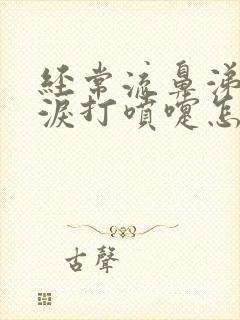 经常流鼻涕
淚打噴嚏怎
古聲